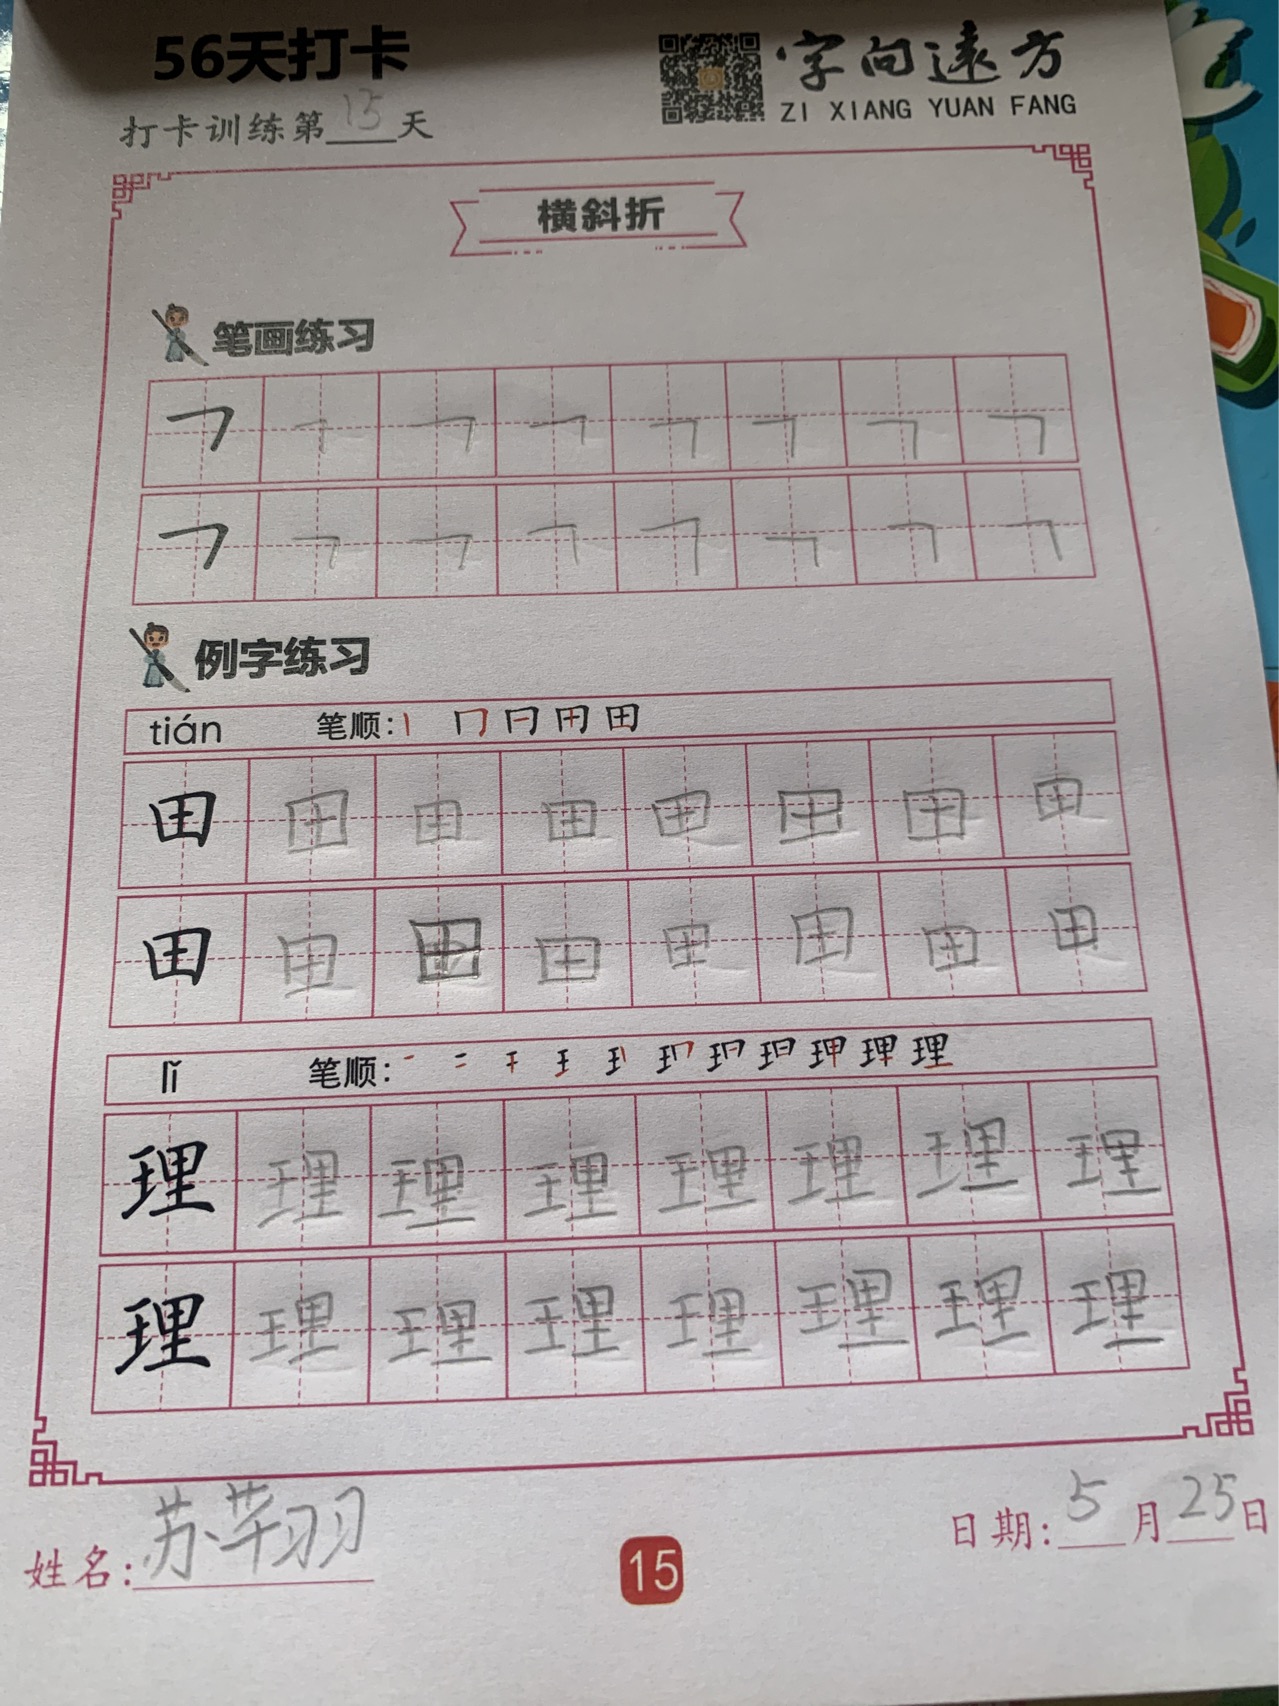 56天打卡
字向遠方
ZI XIANG YUAN FANG
打卡训练第15天
横斜折
笔画练习
例字练习
tián 笔顺: 丨 冂 冃 田 田
田 田 田 田 田 田 田 田
田 田 田 田 田 田 田 田
lǐ 笔顺: 理
理 理 理 理 理 理 理 理
理 理 理 理 理 理 理 理
姓名: 苏芊羽
15
日期: 5月25日